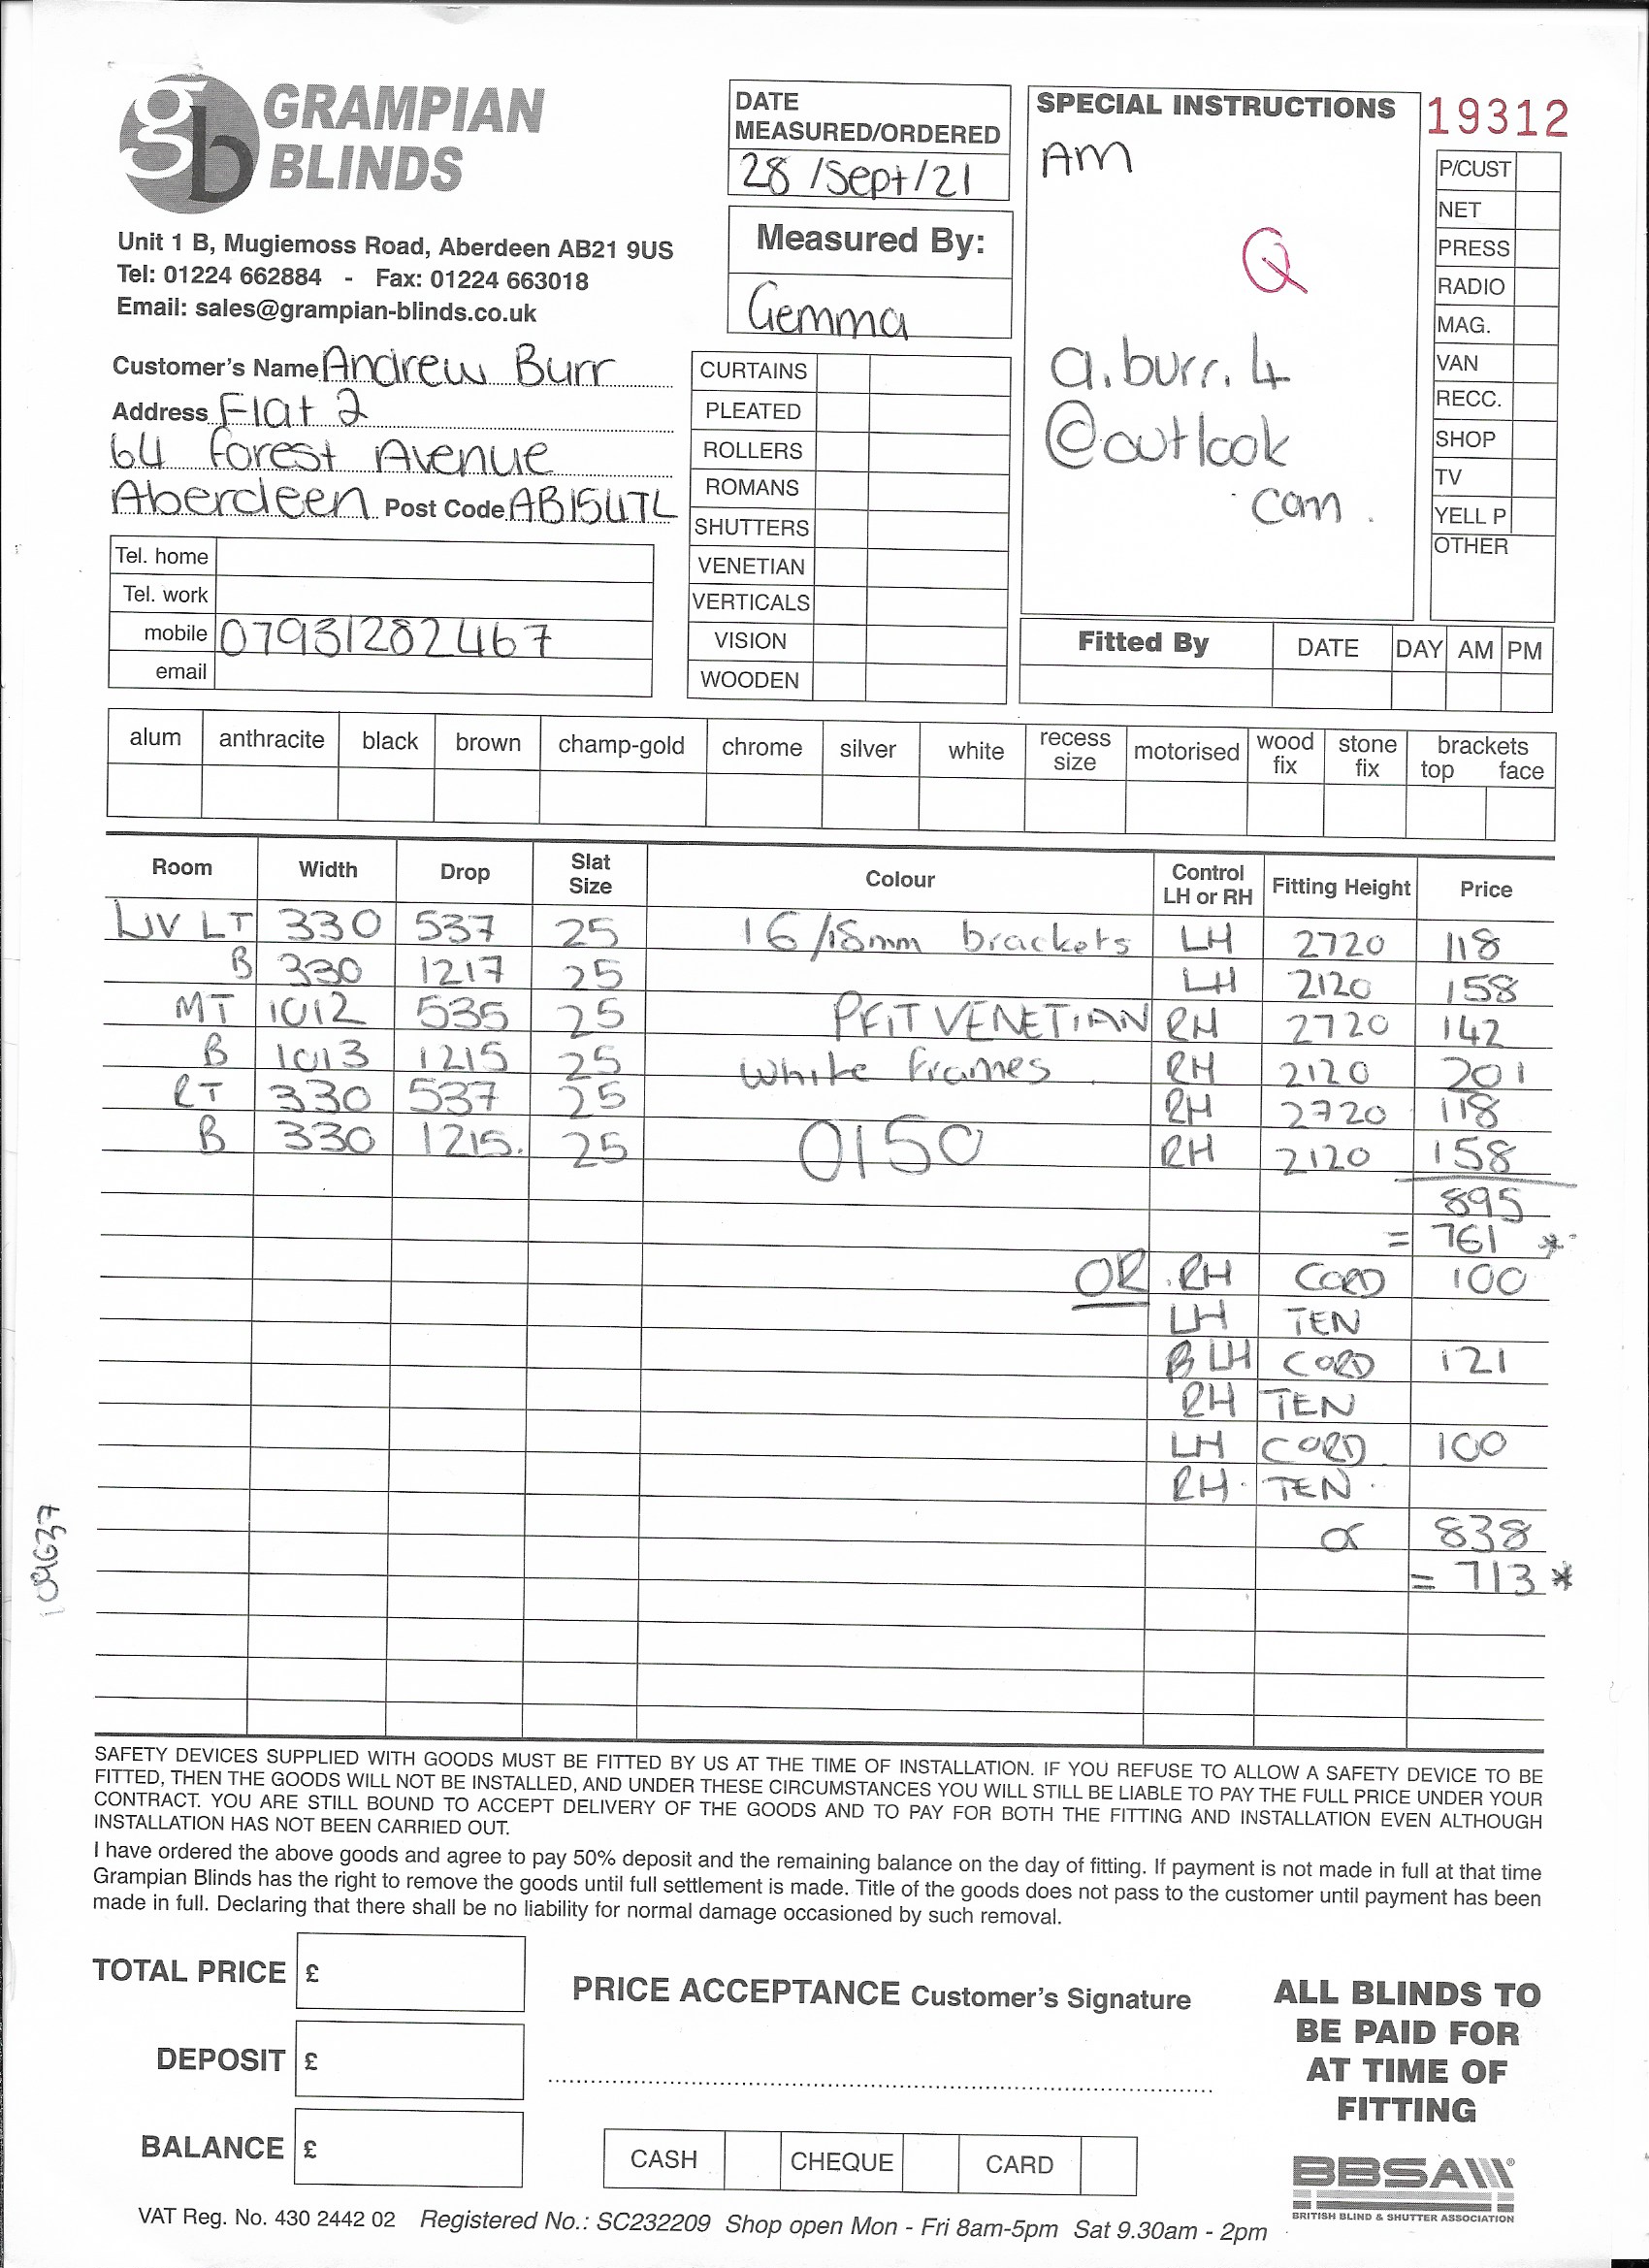 gb GRAMPIAN
BLINDS
Unit 1 B, Mugiemoss Road, Aberdeen AB21 9US
Tel: 01224 662884 - Fax: 01224 663018
Email: sales@grampian-blinds.co.uk
Customer's Name Andrew Burr
Address Flat 2
64 Forest Avenue
Aberdeen Post Code AB15 4TL
Tel. home
Tel. work
mobile 07931282467
email
DATE
MEASURED/ORDERED
28/Sept/21
Measured By:
Gemma
CURTAINS
PLEATED
ROLLERS
ROMANS
SHUTTERS
VENETIAN
VERTICALS
VISION
WOODEN
SPECIAL INSTRUCTIONS
AM
Q
a.burr.4
@outlook
.com
19312
P/CUST
NET
PRESS
RADIO
MAG.
VAN
RECC.
SHOP
TV
YELL P
OTHER
Fitted By DATE DAY AM PM
alum anthracite black brown champ-gold chrome silver white recess size motorised wood fix stone fix brackets top face
Room Width Drop Slat Size Colour Control LH or RH Fitting Height Price
LIV LT 330 537 25 16/18mm brackets LH 2720 118
B 330 1217 25 LH 2120 158
MT 1012 535 25 PFIT VENETIAN RH 2720 142
B 1013 1215 25 white frames RH 2120 201
RT 330 537 25 RH 2720 118
B 330 1215. 25 0150 RH 2120 158
895
= 761 *
OR RH CORD 100
LH TEN
B LH CORD 121
RH TEN
LH CORD 100
RH TEN
or 838
= 713 *
109637
SAFETY DEVICES SUPPLIED WITH GOODS MUST BE FITTED BY US AT THE TIME OF INSTALLATION. IF YOU REFUSE TO ALLOW A SAFETY DEVICE TO BE
FITTED, THEN THE GOODS WILL NOT BE INSTALLED, AND UNDER THESE CIRCUMSTANCES YOU WILL STILL BE LIABLE TO PAY THE FULL PRICE UNDER YOUR
CONTRACT. YOU ARE STILL BOUND TO ACCEPT DELIVERY OF THE GOODS AND TO PAY FOR BOTH THE FITTING AND INSTALLATION EVEN ALTHOUGH
INSTALLATION HAS NOT BEEN CARRIED OUT.
I have ordered the above goods and agree to pay 50% deposit and the remaining balance on the day of fitting. If payment is not made in full at that time
Grampian Blinds has the right to remove the goods until full settlement is made. Title of the goods does not pass to the customer until payment has been
made in full. Declaring that there shall be no liability for normal damage occasioned by such removal.
TOTAL PRICE £
DEPOSIT £
BALANCE £
PRICE ACCEPTANCE Customer's Signature
CASH CHEQUE CARD
ALL BLINDS TO
BE PAID FOR
AT TIME OF
FITTING
BBSA
BRITISH BLIND & SHUTTER ASSOCIATION
VAT Reg. No. 430 2442 02 Registered No.: SC232209 Shop open Mon - Fri 8am-5pm Sat 9.30am - 2pm